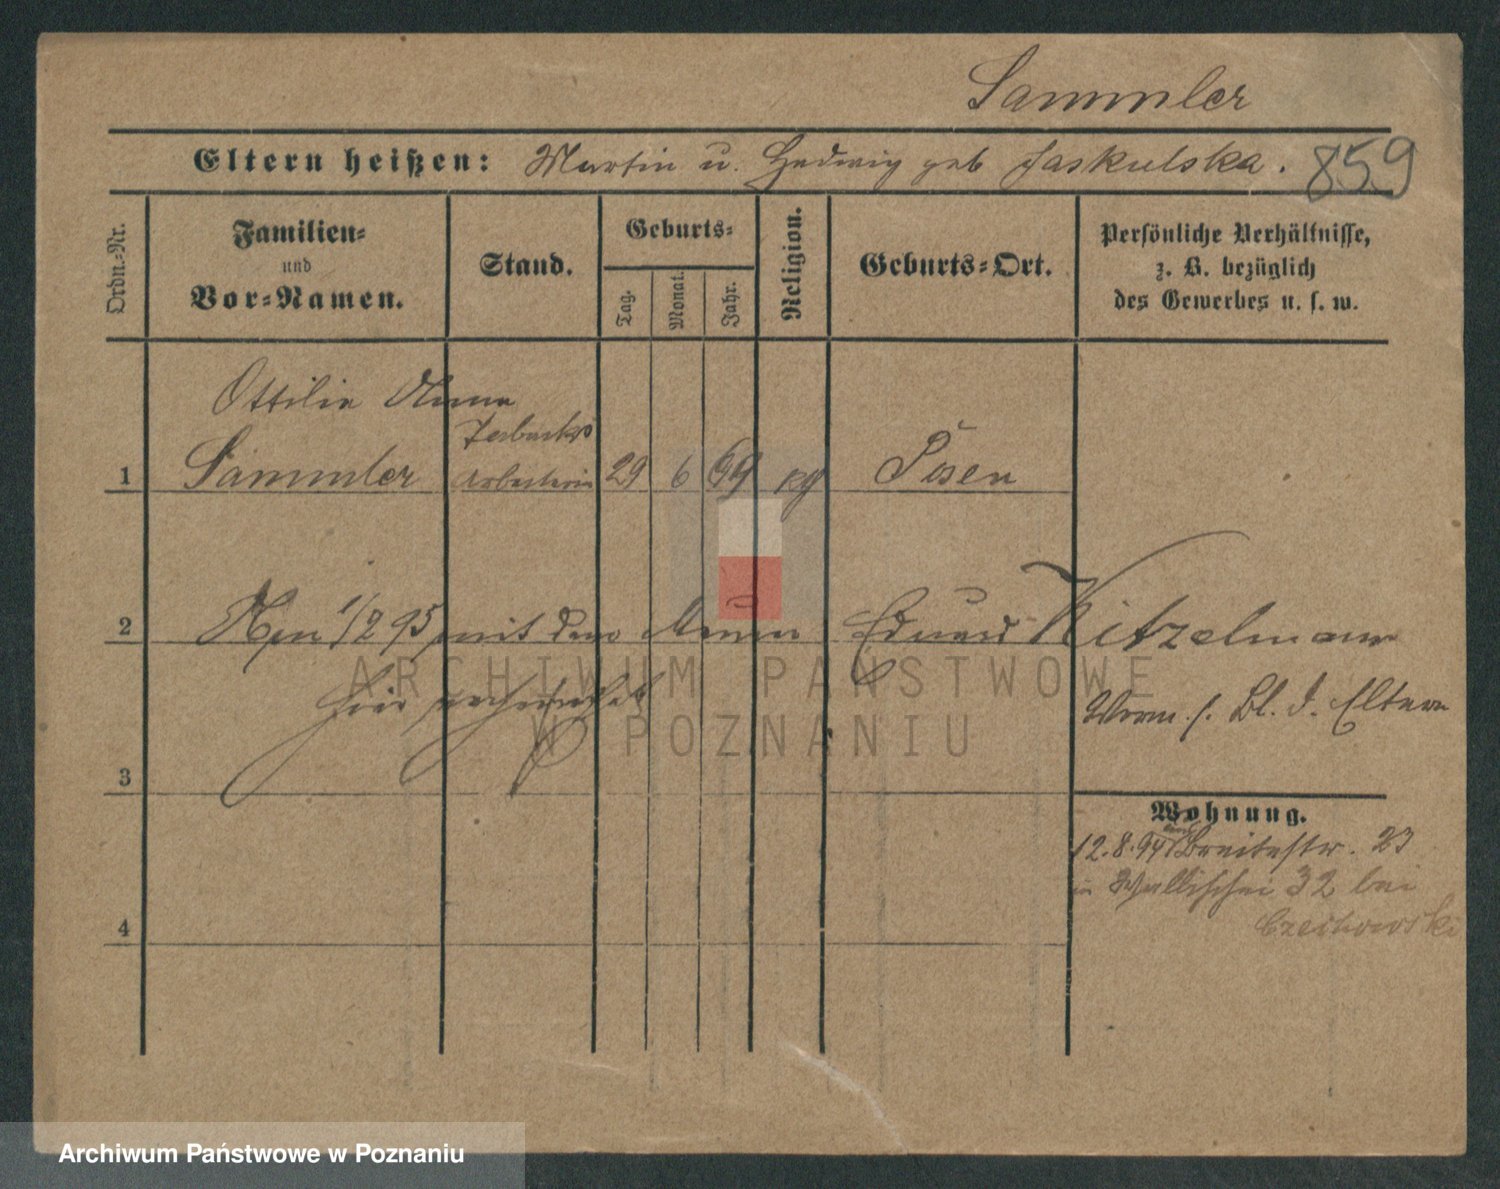 Sammler
Eltern heißen: Martin u. Hedwig geb Jaskulska.
859
Ordn.-Nr.
Familien-
und
Vor-Namen.
Stand.
Geburts-
Tag.
Monat.
Jahr.
Religion.
Geburts-Ort.
Persönliche Verhältnisse,
z. B. bezüglich
des Gewerbes u. s. w.
Ottilie Anna
1 Sammler Arbeiterin 29 6 Posen
2 1/2 95 mit dem Eduard Kitzelmann
hier
Verm. s. Bl. d. Eltern
3
Wohnung.
12.8.94 Breitestr. 23
Wallischei 32 bei
Czechowski
4
ARCHIWUM PAŃSTWOWE
W POZNANIU
Archiwum Państwowe w Poznaniu